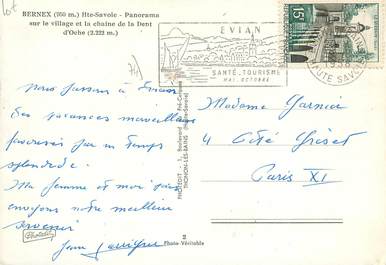 BERNEX (950 m.) Hte-Savoie - Panorama
sur le village et la chaîne de la Dent
d'Oche (2.222 m.)
EVIAN
SANTÉ, TOURISME
MAI. OCTOBRE
15
HAUTE SAVOIE
Nous passons à Evian
des vacances merveilleuses
favorisées par un temps
splendide.
Ma femme et moi vous
envoyons notre meilleur
souvenir
Photédit
Madame Garnier
4 Cité
Paris XI
PHOTÉDIT - 3, Boulevard
THONON-LES-BAINS (Haute-Savoie)
Photo-Véritable